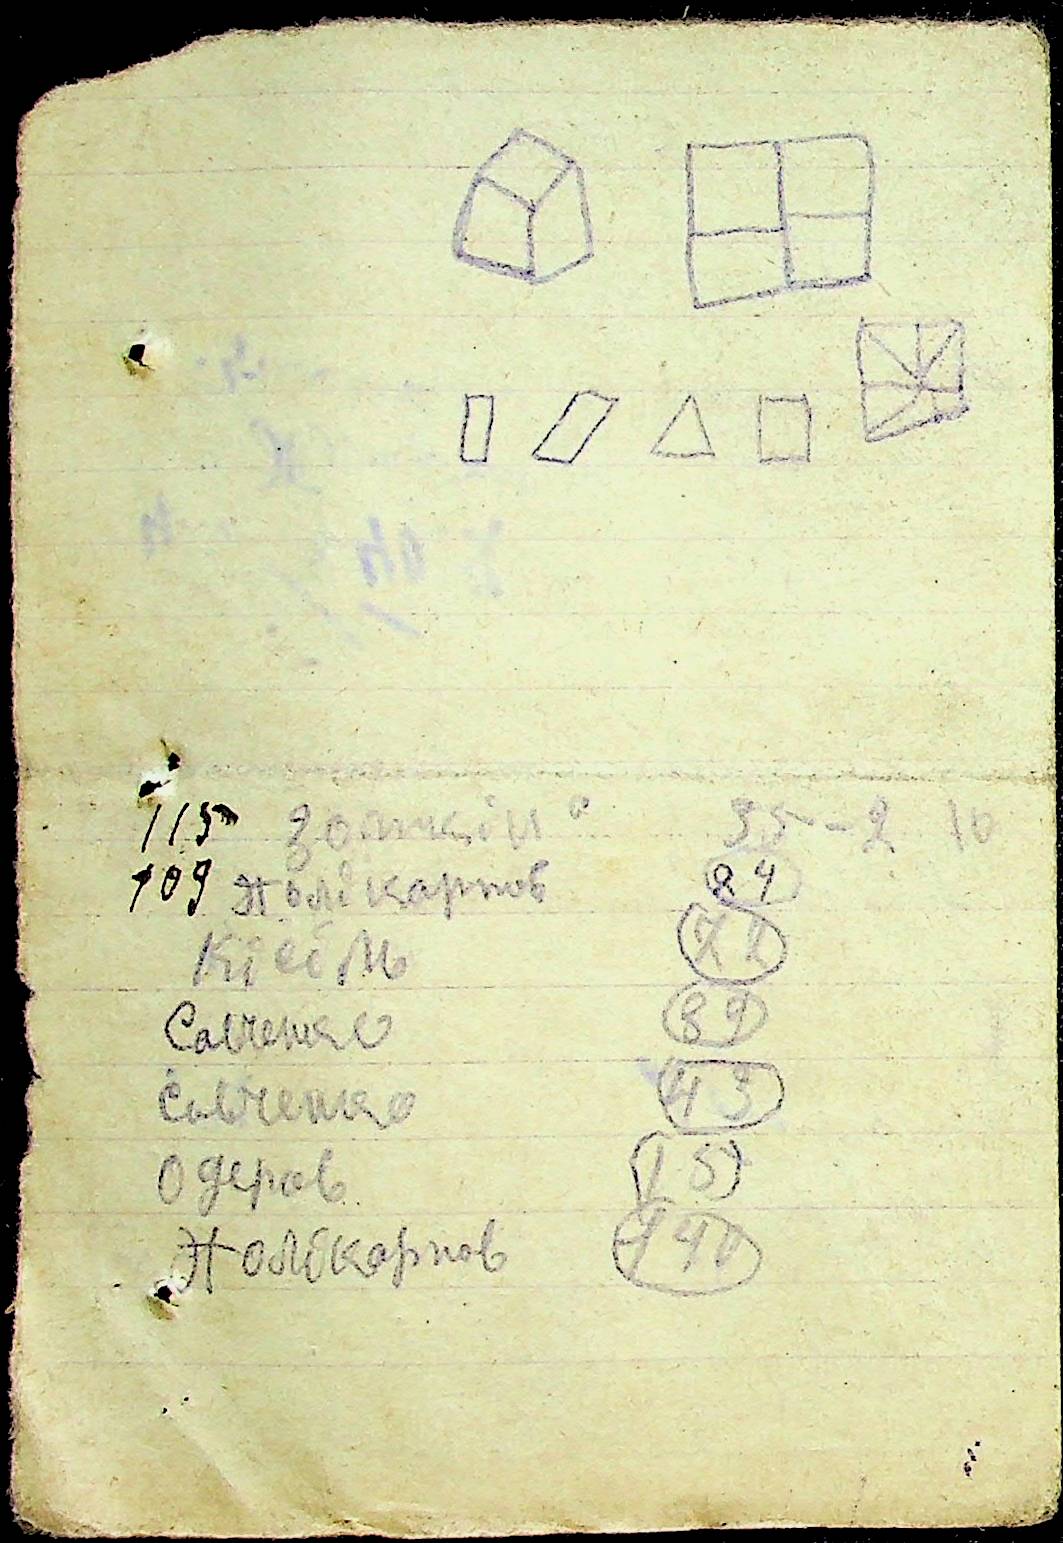 115 35-2 10
109 Полікарпов 24
Кісіль
Савченко 89
Савченко 43
Одеров 15
Полікарпов